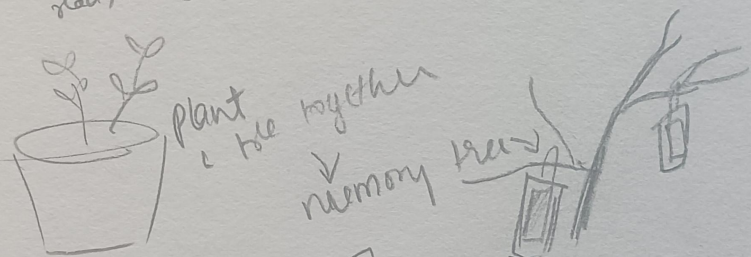 plant
together
memory tree